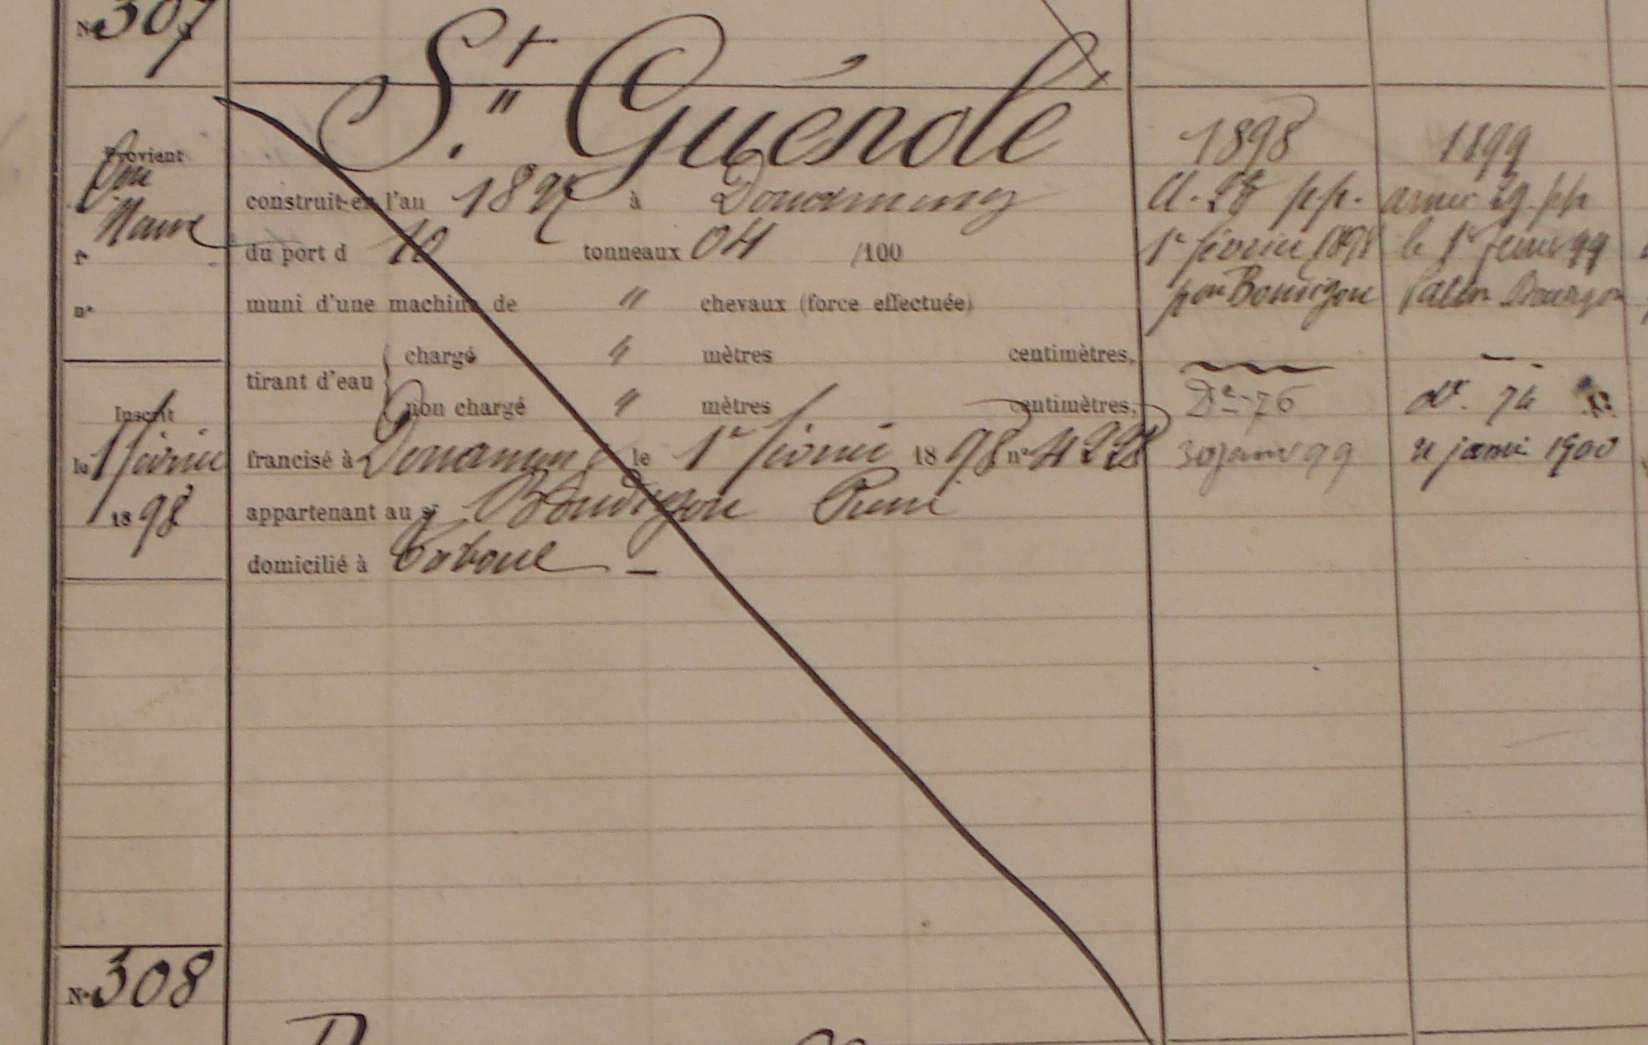 N° 307
St Guénolé
Provient
Du
Havre
f°
n°
construit en l'an 1897 à Douarnenez
du port d 10 tonneaux 04 /100
muni d'une machine de " chevaux (force effectuée)
tirant d'eau
chargé " mètres centimètres,
non chargé " mètres centimètres,
Inscrit
le 1er février
1898
francisé à Douarnenez le 1er février 1898 n° 4228
appartenant au sr Bourdigou
domicilié à Tréboul
1898
A. 28 pp.
1er février 1898
pon Bourdigou
Dr 76
30 janv 99
1899
armé 29 pp
le 1er février 99
Patron
dt. 76
janvier 1900
N° 308